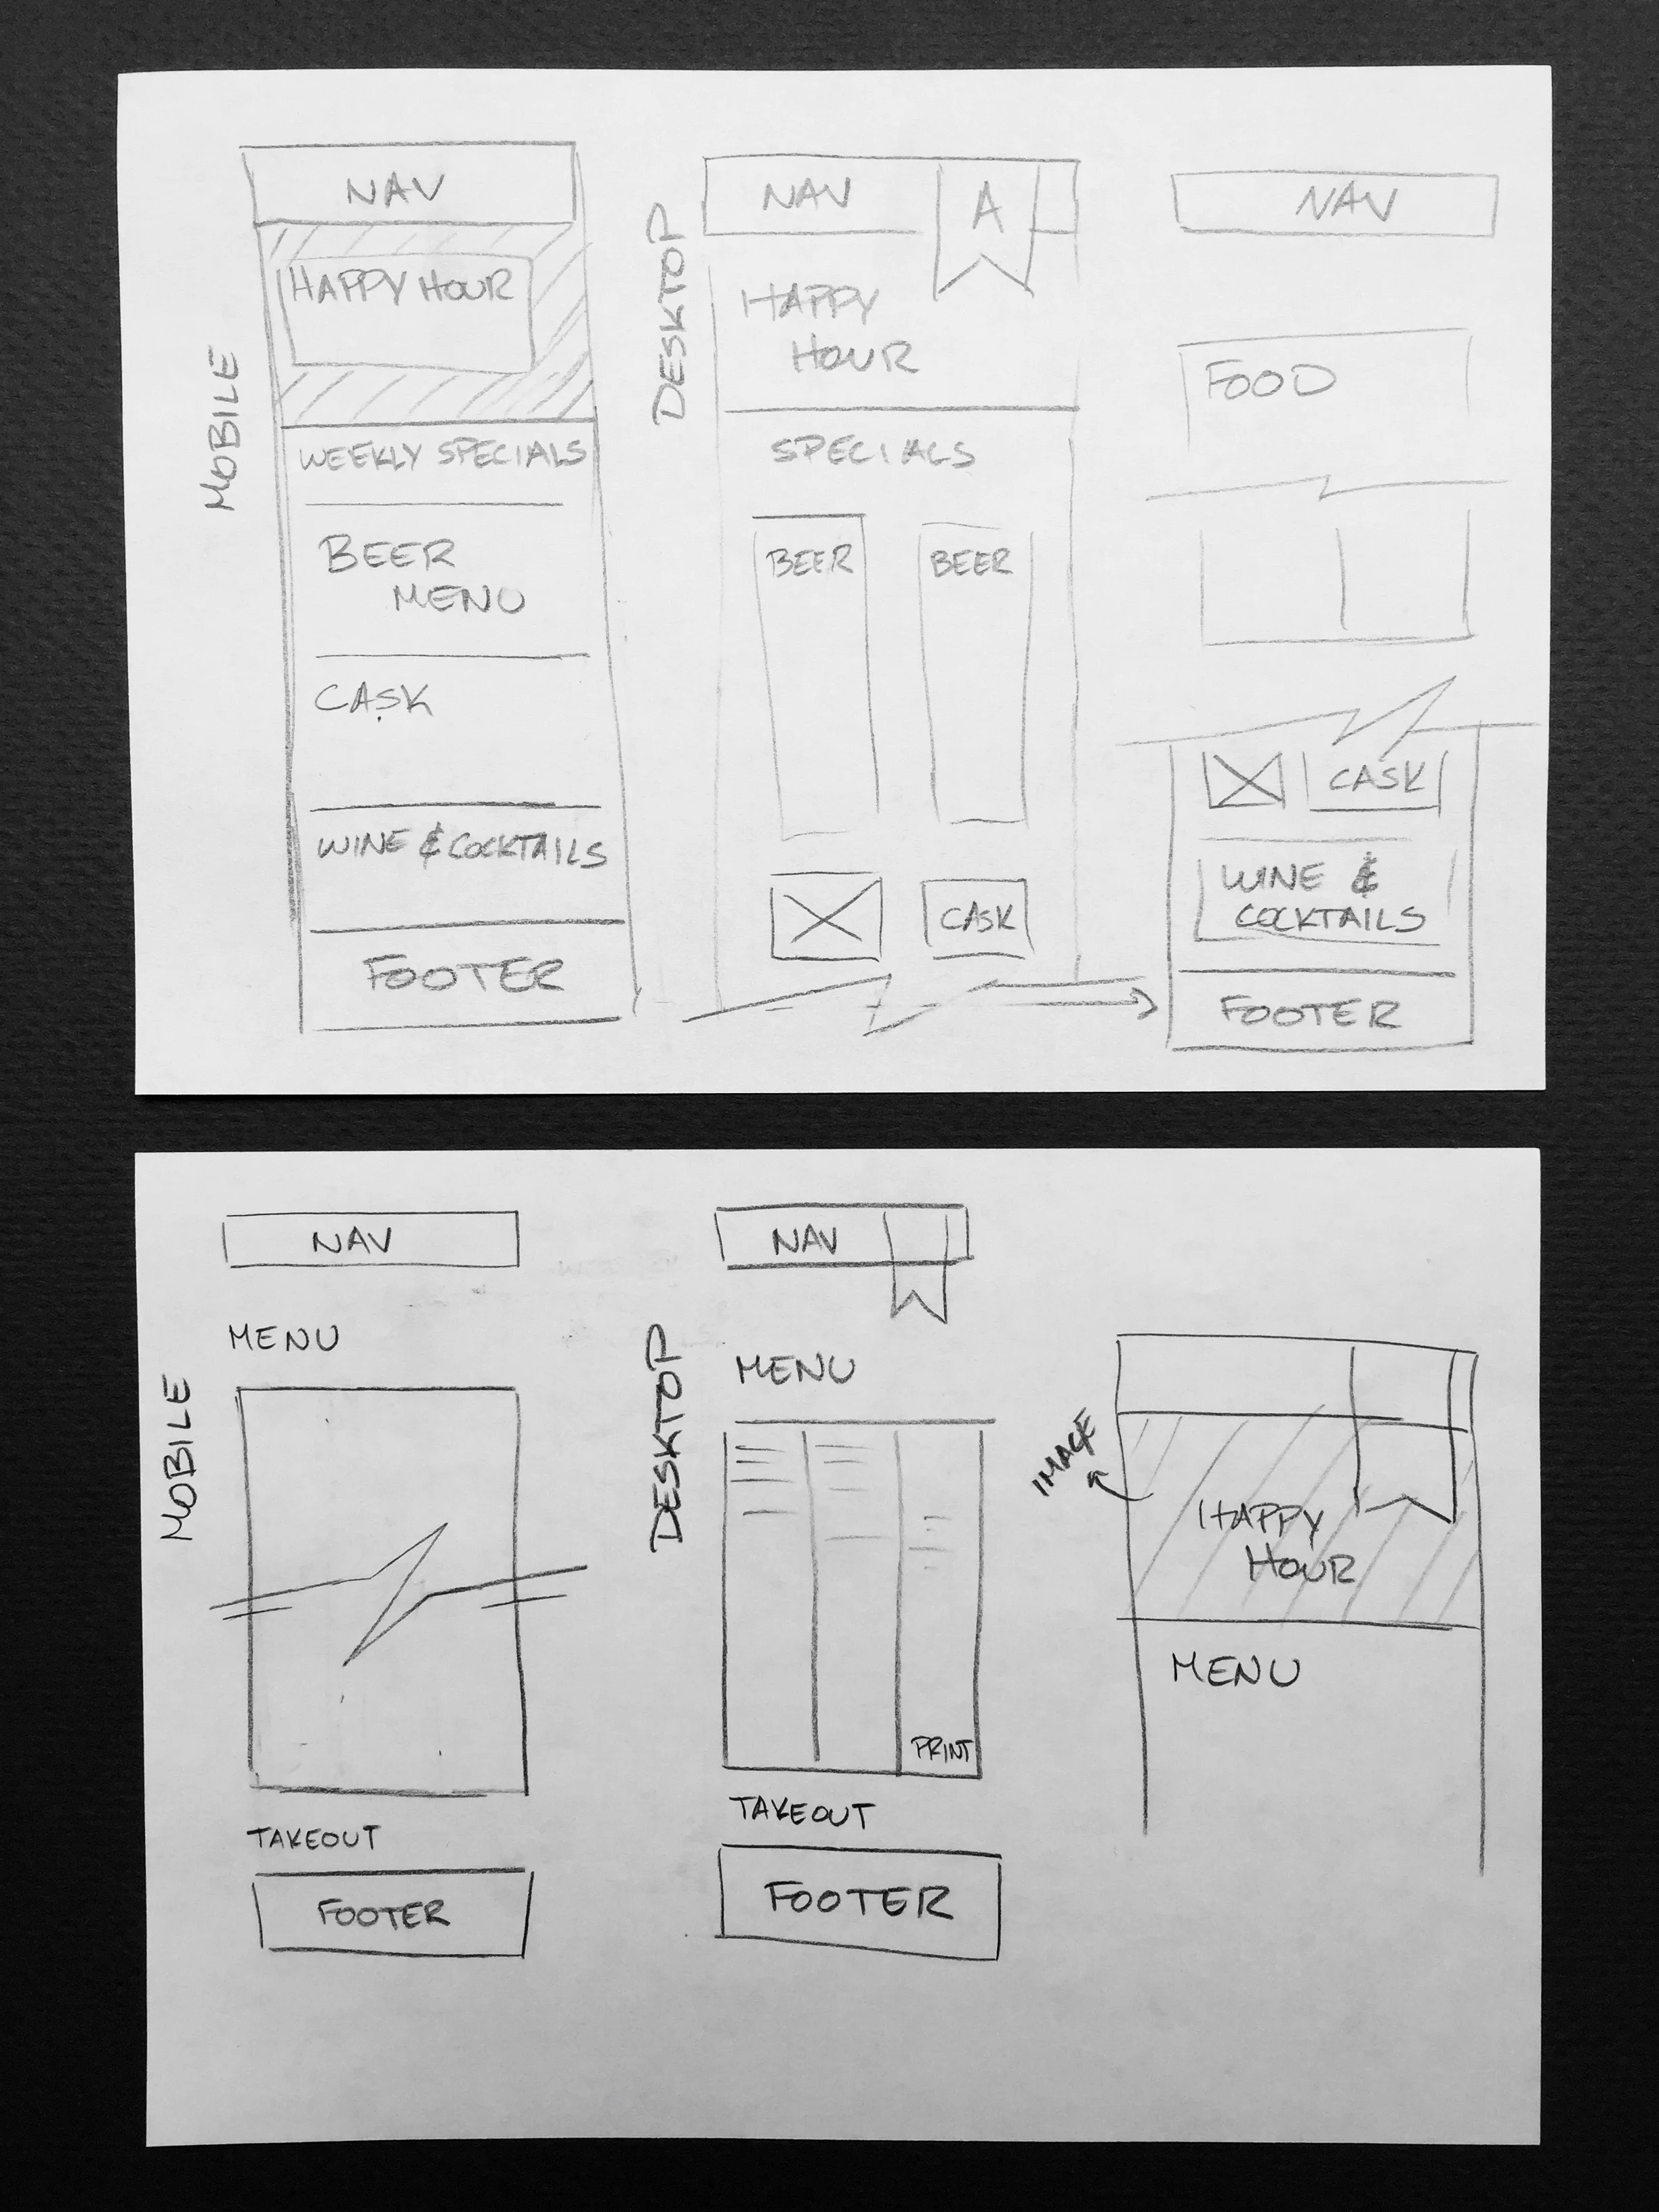 MOBILE
NAV
HAPPY HOUR
WEEKLY SPECIALS
BEER
MENU
CASK
WINE & COCKTAILS
FOOTER
DESKTOP
NAV
A
HAPPY
HOUR
SPECIALS
BEER
BEER
CASK
NAV
FOOD
CASK
WINE &
COCKTAILS
FOOTER
MOBILE
NAV
MENU
TAKEOUT
FOOTER
DESKTOP
NAV
MENU
PRINT
TAKEOUT
FOOTER
IMAGE
HAPPY
HOUR
MENU